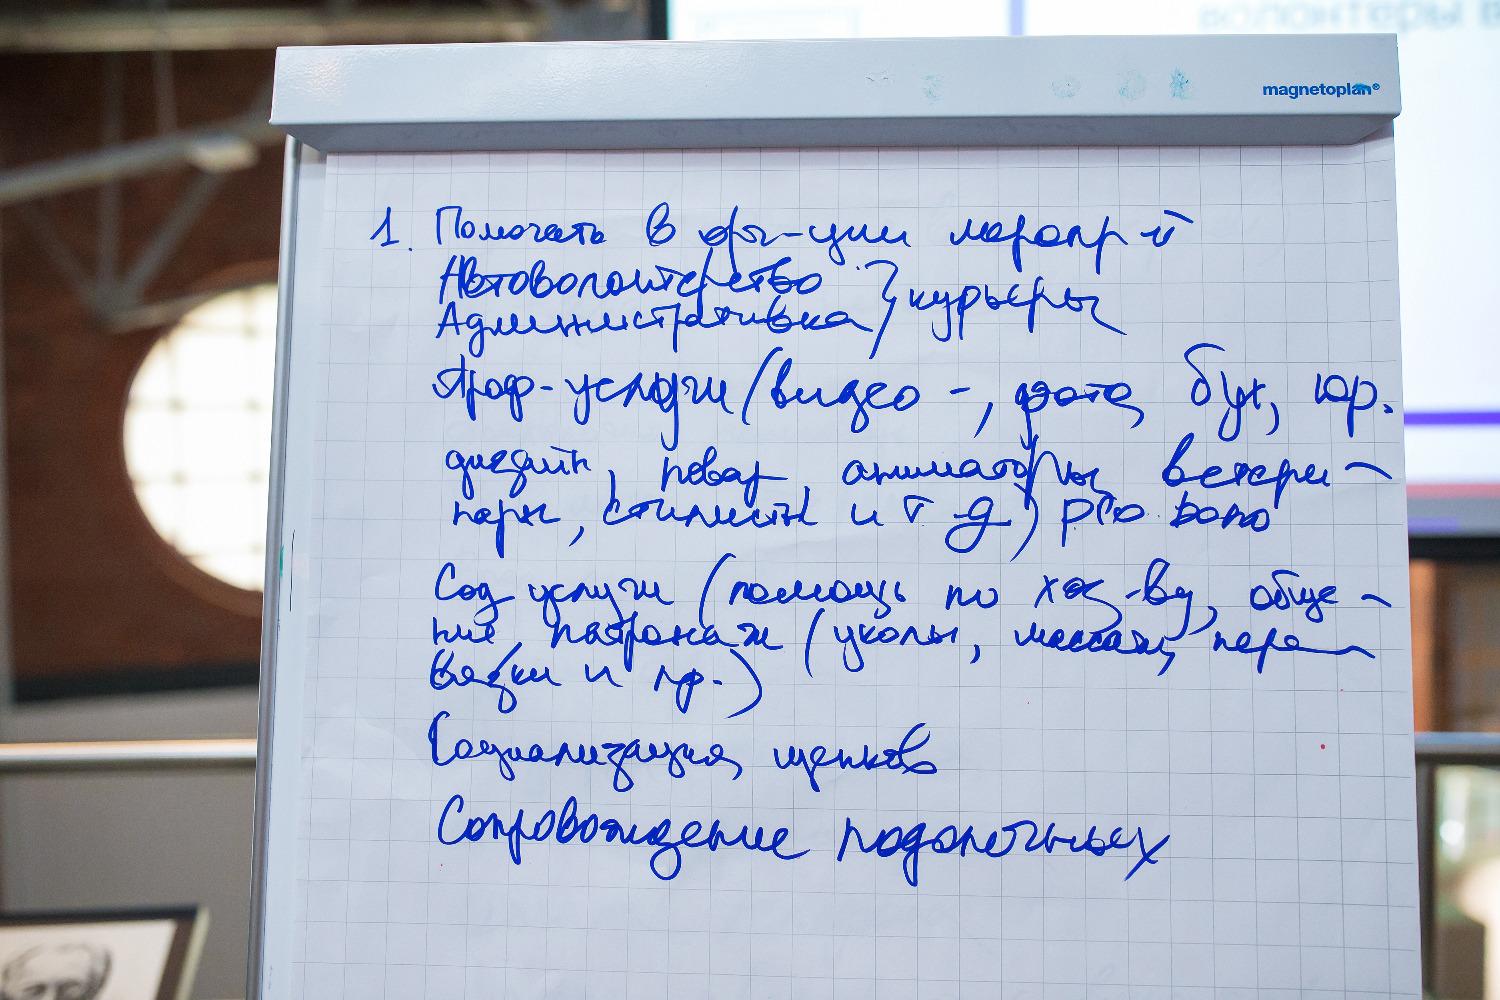 волонтеры в
magnetoplan®
1. Помогать в орг-ции меропр-й
Автоволонтерство } курьеры
Административка
Проф-услуги (видео-, фото, бух, юр.
дизайн, повар, аниматоры, ветери-
нары, стилисты и т д) pro bono
Соц услуги (помощь по хоз-ву, обще-
ние, патронаж (уколы, массаж, пере
вязки и пр.)
Социализация щенков
Сопровождение подопечных